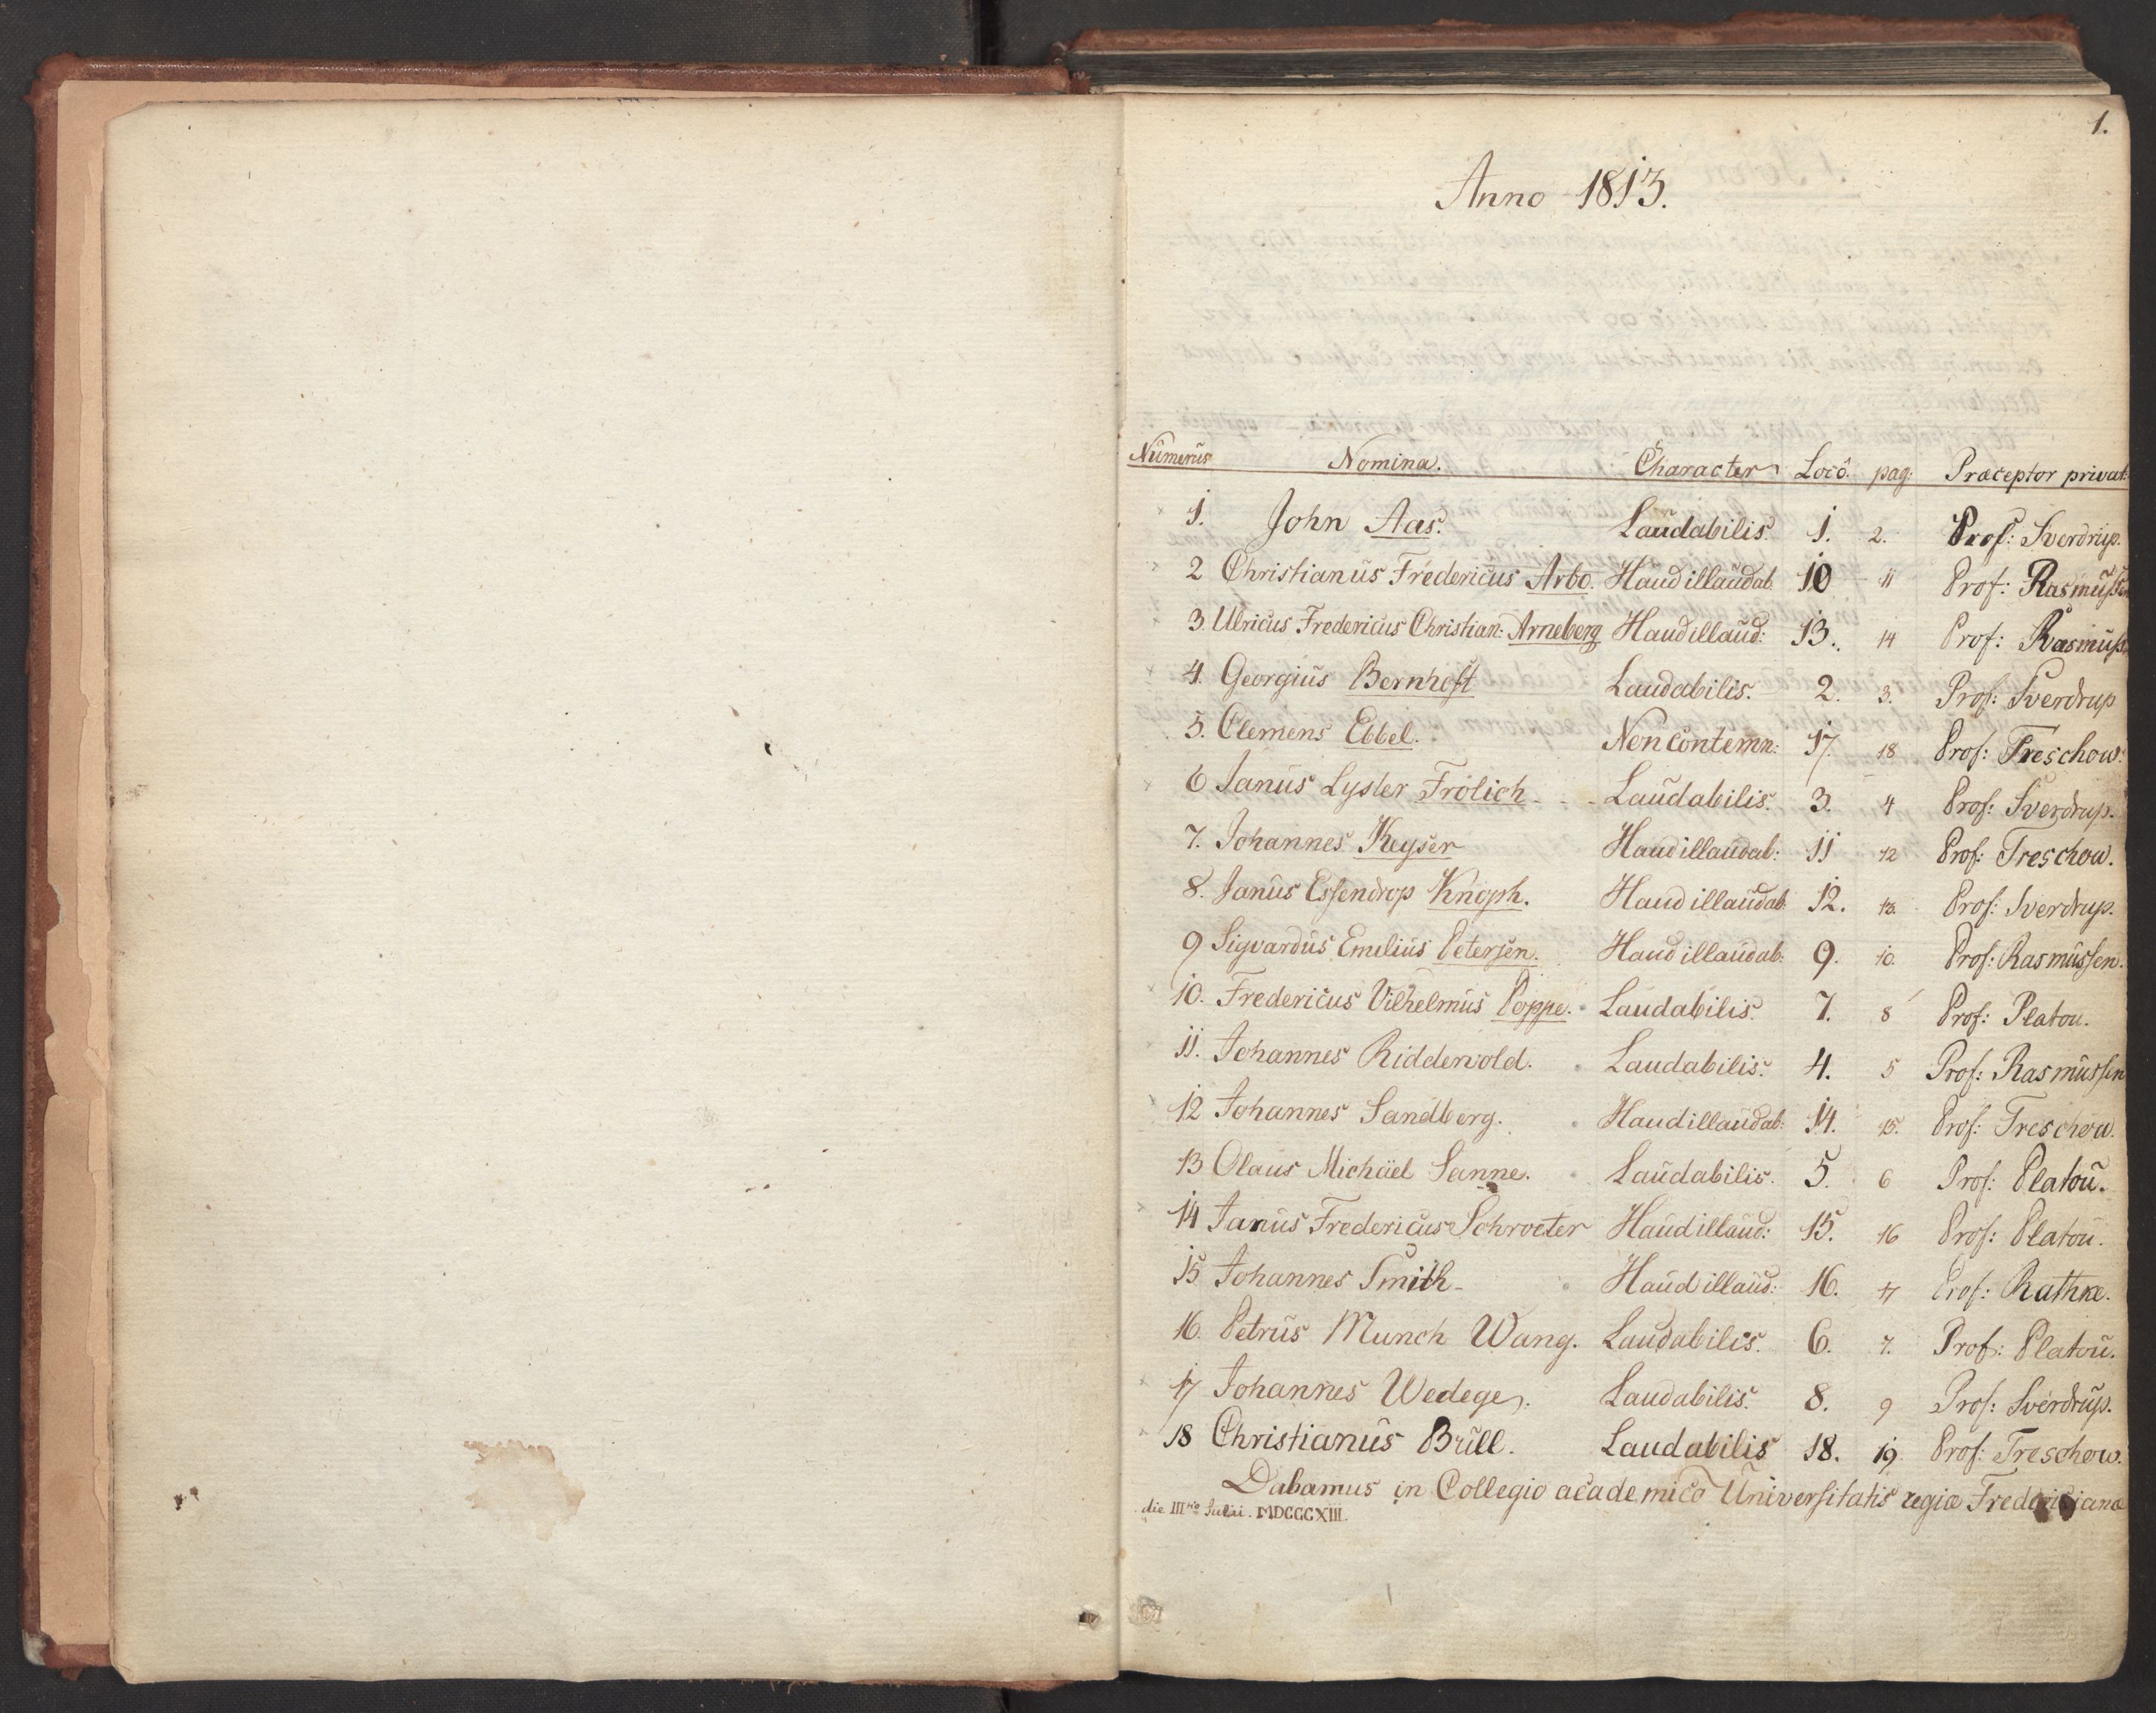 1.
Anno 1813.
Numerus Nomina. Character Loco. pag: Præceptor privat:
1. John Aas. Laudabilis. 1. 2. Prof: Sverdrup.
2 Christianus Fredericus Arbo. Haud illaudab. 10 11 Prof: Rasmussen
3. Ulricus Fredericus Christian: Arneberg Haud illaud: 13. 14 Prof: Rasmuss.
4. Georgius Bernhoft Laudabilis. 2. 3. Prof: Sverdrup
5. Clemens Ebbel. Non contemn: 17. 18 Prof: Treschow.
6 Janus Lyster Frölich - - Laudabilis. 3. 4 Prof: Sverdrup.
7. Johannes Keyser Haud illaudab: 11 12 Prof: Treschow.
8. Janus Essendrop Knoph. Haud illaudab: 12. 13. Prof: Sverdrup.
9 Sigvardus Emilius Petersen. Haud illaudab: 9. 10. Prof: Rasmussen.
10. Fredericus Vilhelmus Poppe. Laudabilis. 7. 8 Prof: Platou.
11. Johannes Riddervold. Laudabilis. 4. 5 Prof: Rasmussen
12 Johannes Sandberg. Haud illaudab: 14. 15. Prof: Treschow.
13 Olaus Michäel Sanne. Laudabilis. 5. 6 Prof: Platou.
14 Janus Fredericus Schroeter Haud illaud: 15. 16 Prof: Platou.
15 Johannes Smith - Haud illaud: 16. 17 Prof: Rathke.
16. Petrus Munch Wang. Laudabilis. 6. 7. Prof: Platou.
17 Johannes Wedege. Laudabilis. 8. 9 Prof: Sverdrup.
18 Christianus Brull. Laudabilis 18. 19. Prof: Treschow.
Dabamus in Collegio academico Universitatis regiæ Fredericianæ
die III tio Julii. MDCCCXIII.